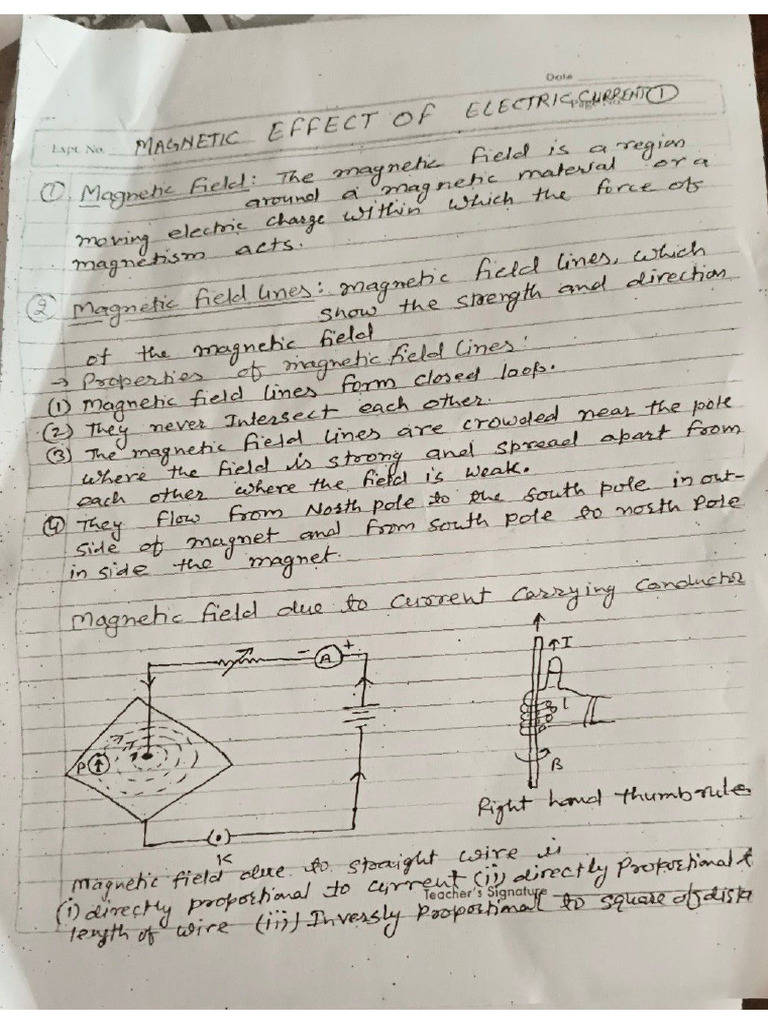 Date
Expt. No. MAGNETIC EFFECT OF ELECTRIC CURRENT ①
① Magnetic Field: The magnetic field is a region
around a magnetic material or a
moving electric charge within which the force of
magnetism acts.
② Magnetic field lines: magnetic field lines, which
show the strength and direction
of the magnetic field
→ Properties of magnetic field lines:
(1) Magnetic field lines form closed loop.
(2) They never Intersect each other.
(3) The magnetic field lines are crowded near the pole
where the field is strong and spread apart from
each other where the field is weak.
(4) They flow from North pole to the south pole in out-
side of magnet and from south pole to north Pole
in side the magnet.
Magnetic field due to current carrying conductor
- A +
I
P
B
K
Right hand thumb rule
Magnetic field due to straight wire is
(i) directly proportional to current (ii) directly Proportional t
Teacher's Signature
length of wire (iii) Inversly proportional to square of dista